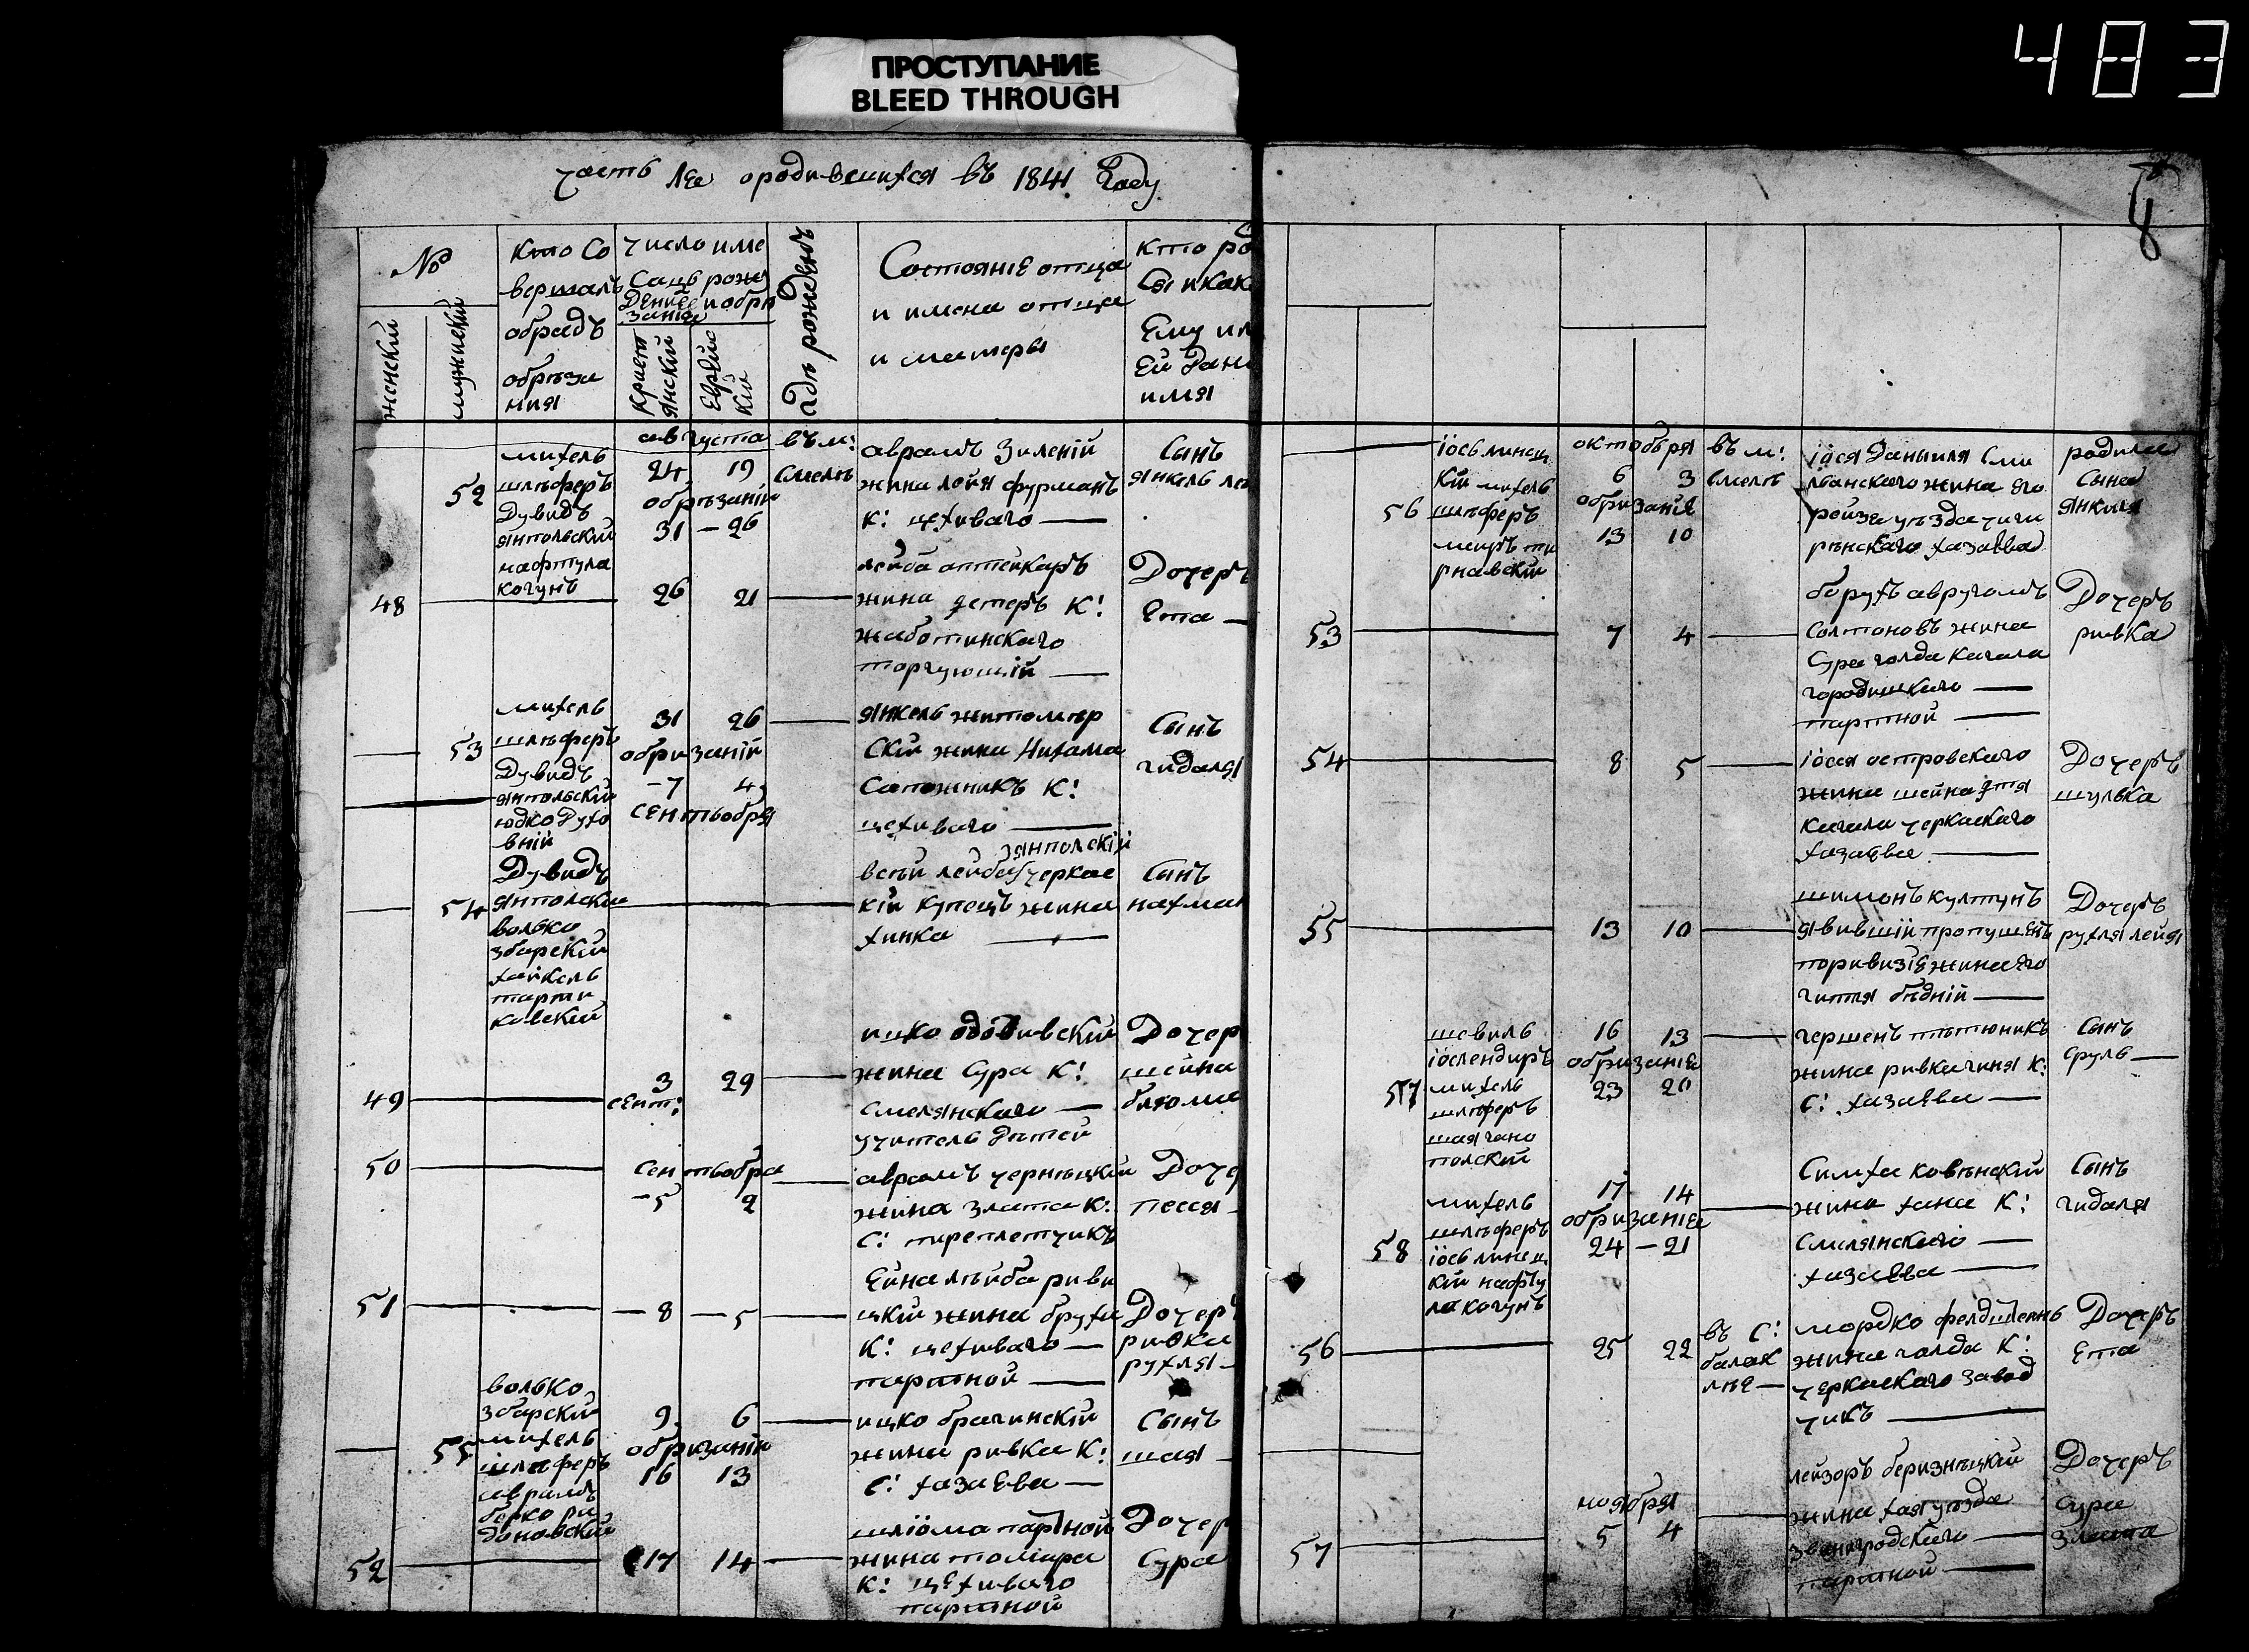 483
ПРОСТУПАНИЕ
BLEED THROUGH
часть 1я ородившихся въ 1841 Году
8
№
женский
мужнский
кто Со
вершалъ
обрадъ
обрѣза
ния
число име
Сацъ рож
Дениее и обрѣ
зание
Крист
янский
Еврѣйс
кий
гдѣ рожденъ
Состояніе отца
и имена отца
и матеры
кто ро
ся и как
Ему ил
Ей Дан
имя
52
михель
шлѣферъ
Дувидъ
янпольский
нафтула
когунъ
августа
24 19
обрѣзаній
31 – 26
въ м:
Смелѣ
аврамъ Зиленій
жина лейя фурманъ
К: цехиваго —
Сынъ
янкель ле
48
26 21
лейба аптейкаръ
жина Эстеръ К:
жаботинскаго
торгующій —
Дочеръ
Ета —
53
михель
шлѣферъ
Дувидъ
янпольский
юдко Духо
вній
31 26
обризаній
– 7 4
Сентьобря
янкель житомѣр
Скій жина Нихама
Сапожникъ К:
цехиваго —
Сынъ
гидаля
54
Дувидъ
янполский
волько
збарский
хайкель
тарти
ковский
янполскій
лейба черкас
кій купецъ жина
хинка —
Сынъ
нахман
49
3 29
сент:
ицко одовивский
жина Сура К:
Смелянскаго —
учитель дѣтей
Дочер
шейна
блюма
50
Сентьобра
– 5 2
аврамъ чернѣцкий
жина злата К:
С: пиреплетчикъ
Доче
песся –
51
– 8 – 5
Ейна лѣйба риви
цкий жина бруха
К: цехиваго —
партной —
Дочеръ
ривка
рухля –
55
волько
збарский
михель
шлѣферъ
аврамъ
берко ра
доновский
9 6
обризаній
16 13
ицко брагинский
жина ривка К:
С: хазаева —
Сынъ
шая –
52
17 14
шліома партной
жина томара
К: цехиваго
партной
Дочер
Сура
56
іось линец
кій михель
шлѣферъ
меиръ ти
рнавский
октобря
6 3
обризаніе
13 10
въ м:
Смелѣ
іося Даныиля Сми
лванскаго жина его
рейза уѣзда чиги
рѣнскаго хазаева
родился
Сынъ
янкиля
53
7 4
борухъ авругомъ
Солтановъ жина
Сура голда кагала
городишкаго —
партной —
Дочеръ
ривка
54
8 5
іося островскаго
жина шейна Этя
кагала черкаскаго
хазаева —
Дочеръ
шулька
55
13 10
шимонъ култунъ
явившій пропущенъ
поривизіе жина его
гиття бѣдній —
Дочеръ
рухля лейя
57
шевиль
іослендиръ
михель
шлѣферъ
шая гано
полский
16 13
обризаніе
23 20
гершенъ плѣтюникъ
жина ривка гиня К:
С: хазаева —
Сынъ
сруль —
58
михель
шлѣферъ
іось линец
кій нафту
ла когунъ
17 14
обризаніе
24 – 21
Симха ковѣнский
жина хана К:
Смилянскаго —
хазаева —
Сынъ
гидаля
56
25 22
въ С:
балак
лѣе —
мордко фелдшеенъ
жина галда К:
черкаскаго завод
чикъ —
Дочеръ
Ета
57
ноября
5 4
лейзоръ беризнѣцкий
жина хая уѣзда
звенигродскаго —
партной —
Дочеръ
Сура
злата